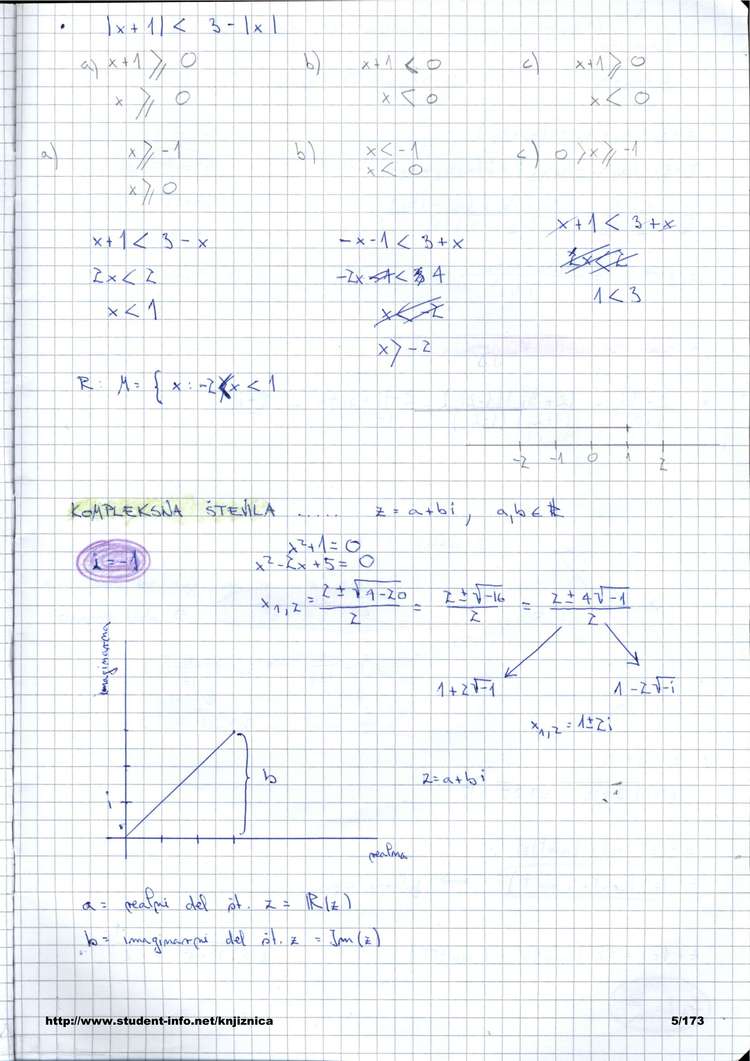 |x+1| < 3-|x|
a) x+1 ⩾ 0 b) x+1 < 0 c) x+1 ⩾ 0
x ⩾ 0 x < 0 x < 0
a) x ⩾ -1 b) x < -1 c) 0 > x ⩾ -1
x ⩾ 0 x < 0
x+1 < 3-x -x-1 < 3+x x+1 < 3+x
2x < 2 -2x < 4 2x < 2
x < 1 x < -2 1 < 3
x > -2
R: M = { x : -2 < x < 1
-2 -1 0 1 2
KOMPLEKSNA ŠTEVILA ..... z = a+bi, a,b ∈ R
i = -1
x²+1 = 0
x²-2x+5 = 0
x₁,₂ = (2 ± √(4-20))/2 = (2 ± √-16)/2 = (2 ± 4√-1)/2
1+2√-1 1-2√-i
x₁,₂ = 1±2i
z = a+bi
imaginarna
b
i
realna
a = realni del št. z = R(z)
b = imaginarni del št. z = Im(z)
http://www.student-info.net/knjiznica 5/173